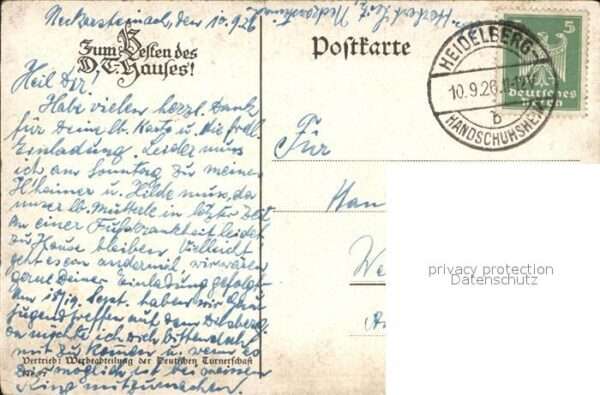 Neckarsteinach, den 10.9.26
Zum Besten des
D. T. Hauses!
Postkarte
HEIDELBERG-
10.9.26.
b
HANDSCHUHSHEIM
5 5
Deutsches
Reich
Heil Dir,
Habe vielen herzl. Dank
für Deine lb. Karte u. die frdl.
Einladung. Leider muss
ich am Sonntag zu
u. Hilde muss, da
unser lb. Mutterle in letzter Zeit
an einer Fusskrankheit leidet
zu Hause bleiben. Vielleicht
geht es ein andermal, wir wären
gerne Deiner Einladung gefolgt.
Am 18/19. Sept. haben wir Gau
jugendtreffen auf dem Dilsberg.
Da möchte ich Dich bitten doch
mit zu kommen u. wenn es
Dir möglich ist bei meinem
mitzumachen.
Vertrieb: Werbeabteilung der Deutschen Turnerschaft
Für
privacy protection
Datenschutz